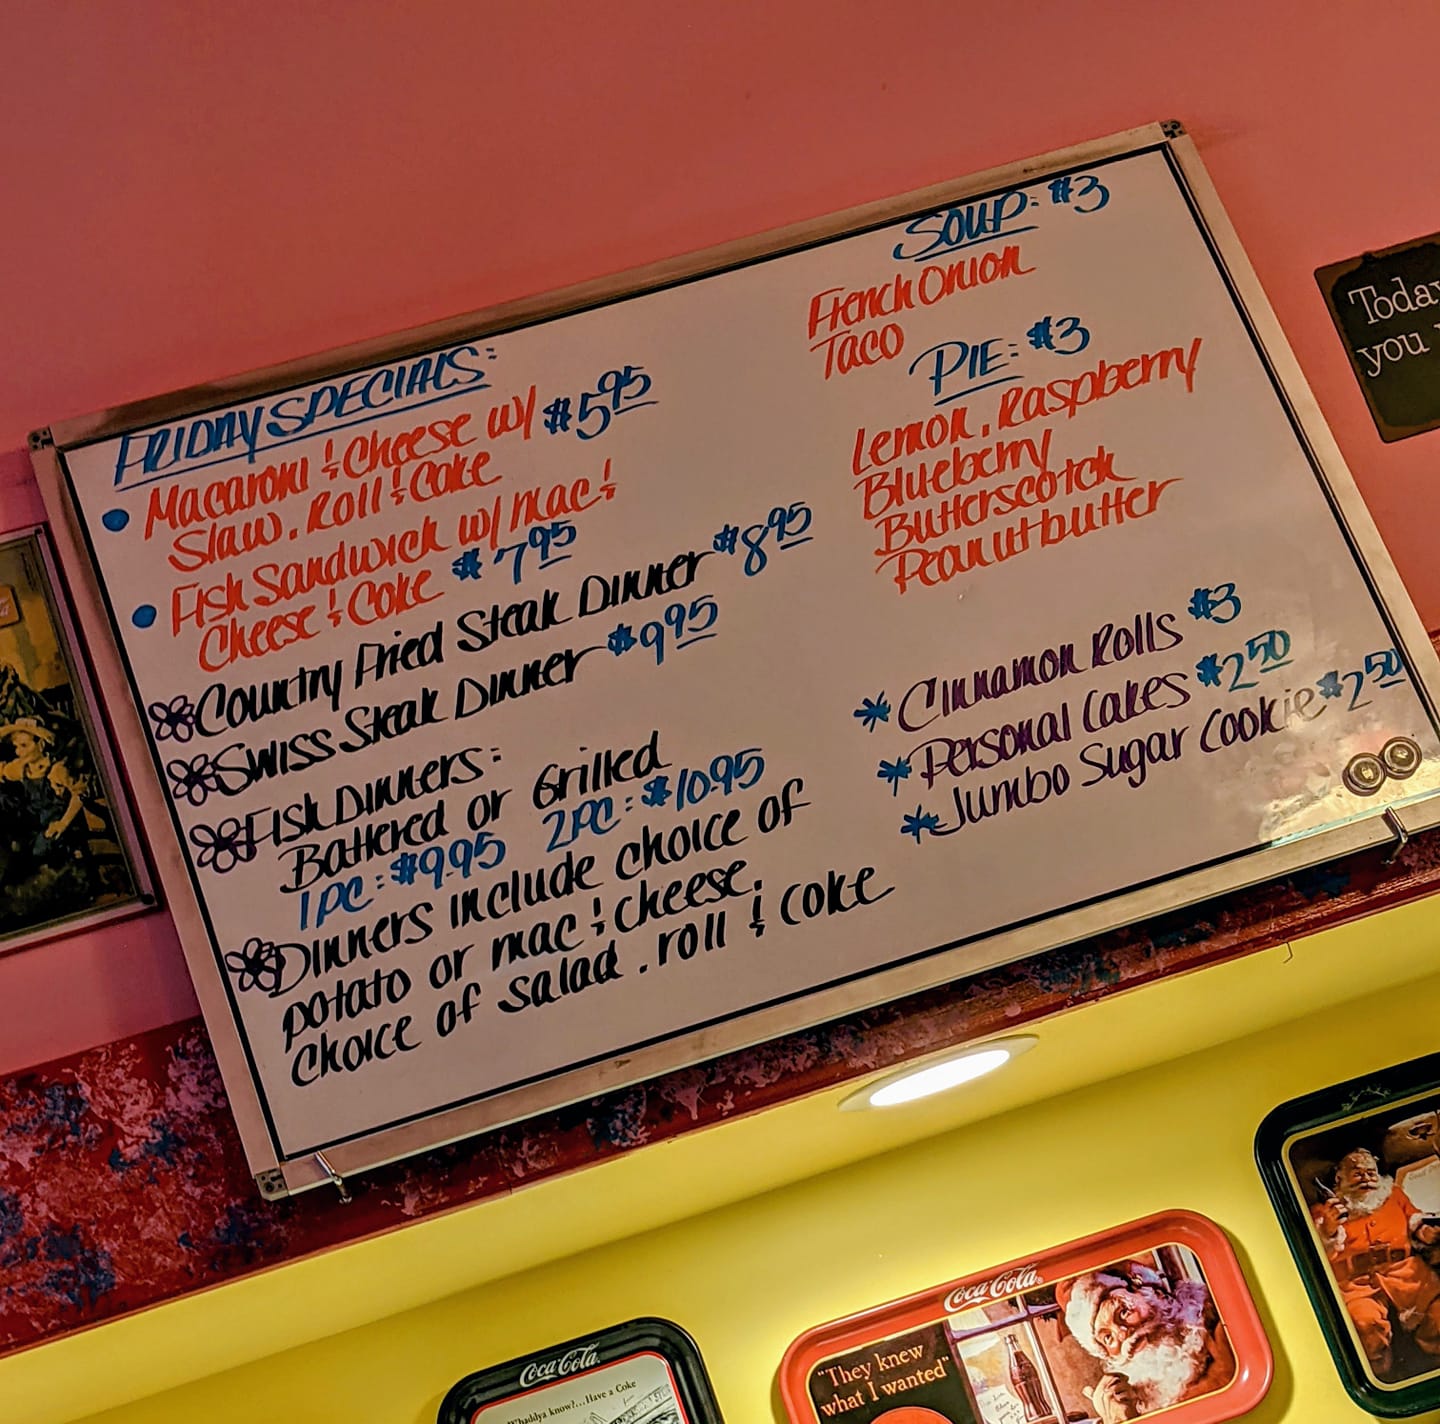 FRIDAY SPECIALS:
• Macaroni & Cheese w/ $5.95
Slaw, Roll & Coke
• Fish Sandwich w/ Mac &
Cheese & Coke $7.95
Country Fried Steak Dinner $8.95
Swiss Steak Dinner $9.95
Fish Dinners:
Battered or Grilled
1PC: $9.95 2PC: $10.95
Dinners include choice of
potato or mac & cheese,
choice of salad, roll & coke
SOUP: $3
French Onion
Taco
PIE: $3
Lemon, Raspberry
Blueberry
Butterscotch
Peanutbutter
* Cinnamon Rolls $3
* Personal Cakes $2.50
* Jumbo Sugar Cookie $2.50
Today
you
Coca-Cola
know?...Have a Coke
Coca-Cola
"They knew
what I wanted"